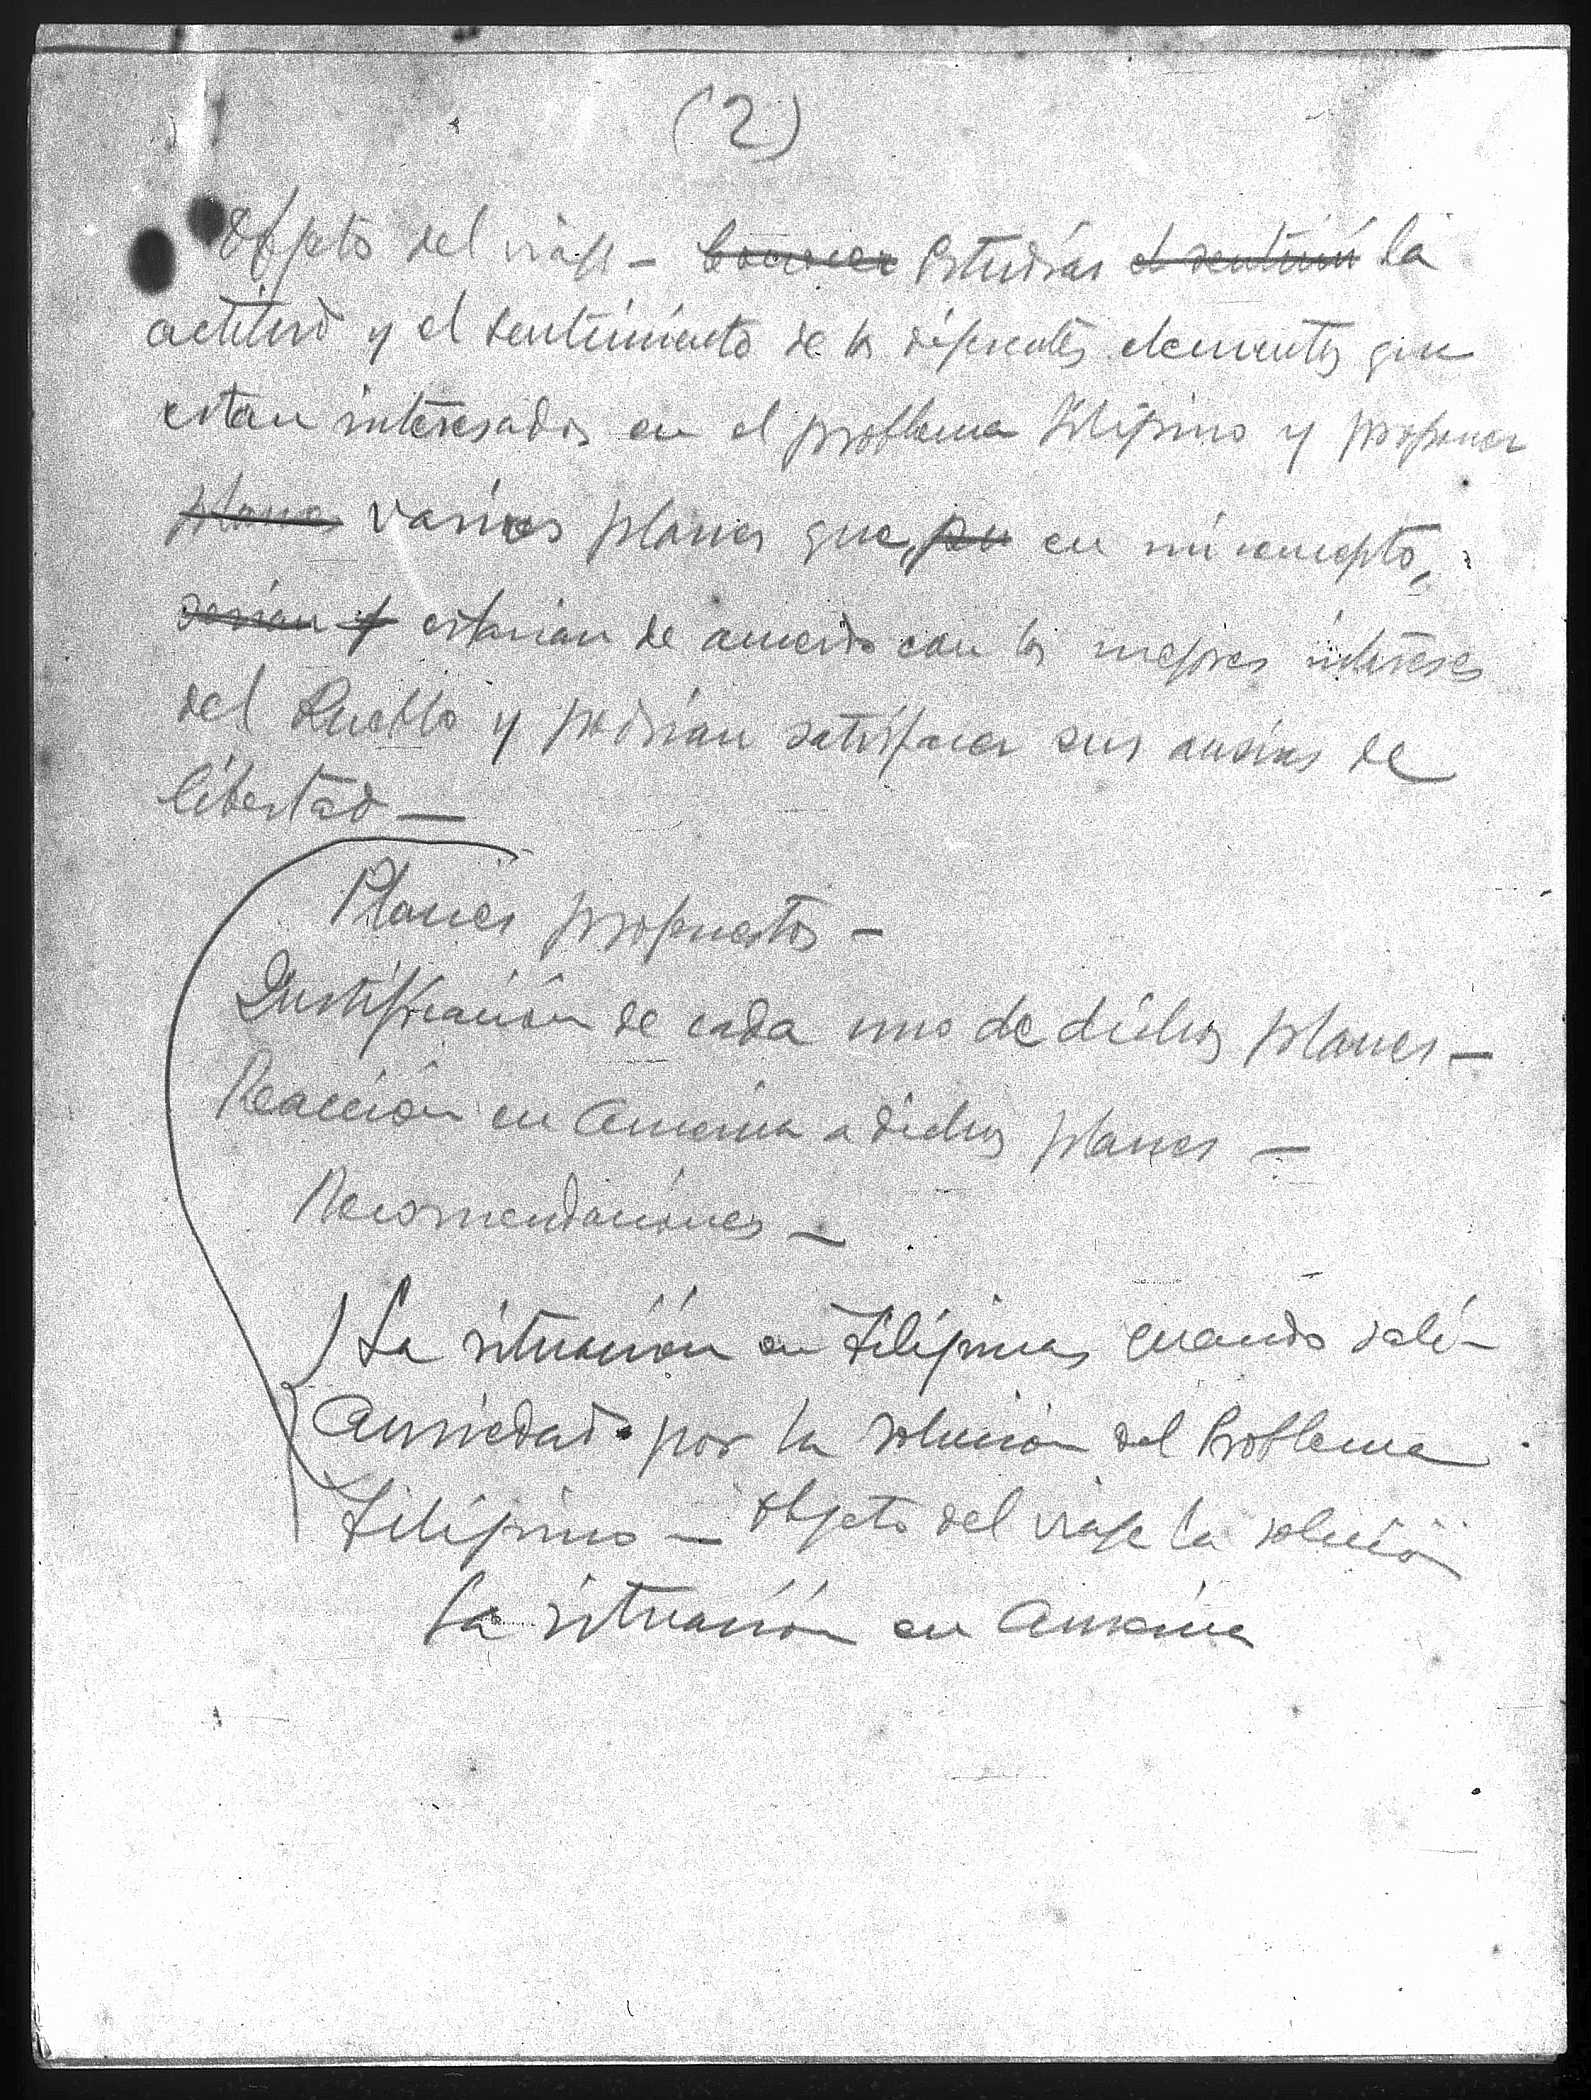 (2)
Objeto del viaje – Conocer Estudiar el sentimi la
actitud y el sentimiento de los diferentes elementos que
estan interesados en el problema Filipino y proponer
planes varios planes que, en mi concepto,
serian y estarian de acuerdo con los mejores intereses
del Pueblo y podrian satisfacer sus ansias de
libertad —
Planes propuestos –
Justificación de cada uno de dichos planes –
Reacción en America a dichos planes –
Recomendaciónes –
La situación en Filipinas cuando salí –
Ansiedad por la solución del Problema
Filipino – Objeto del viaje la solución
La situación en America